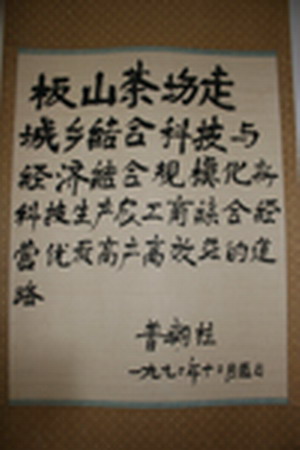 板山茶场走
城乡结合科技与
经济结合规模化和
科技生产农工商综合经
营优质高产高效益的道
路
一九九二年十二月五日